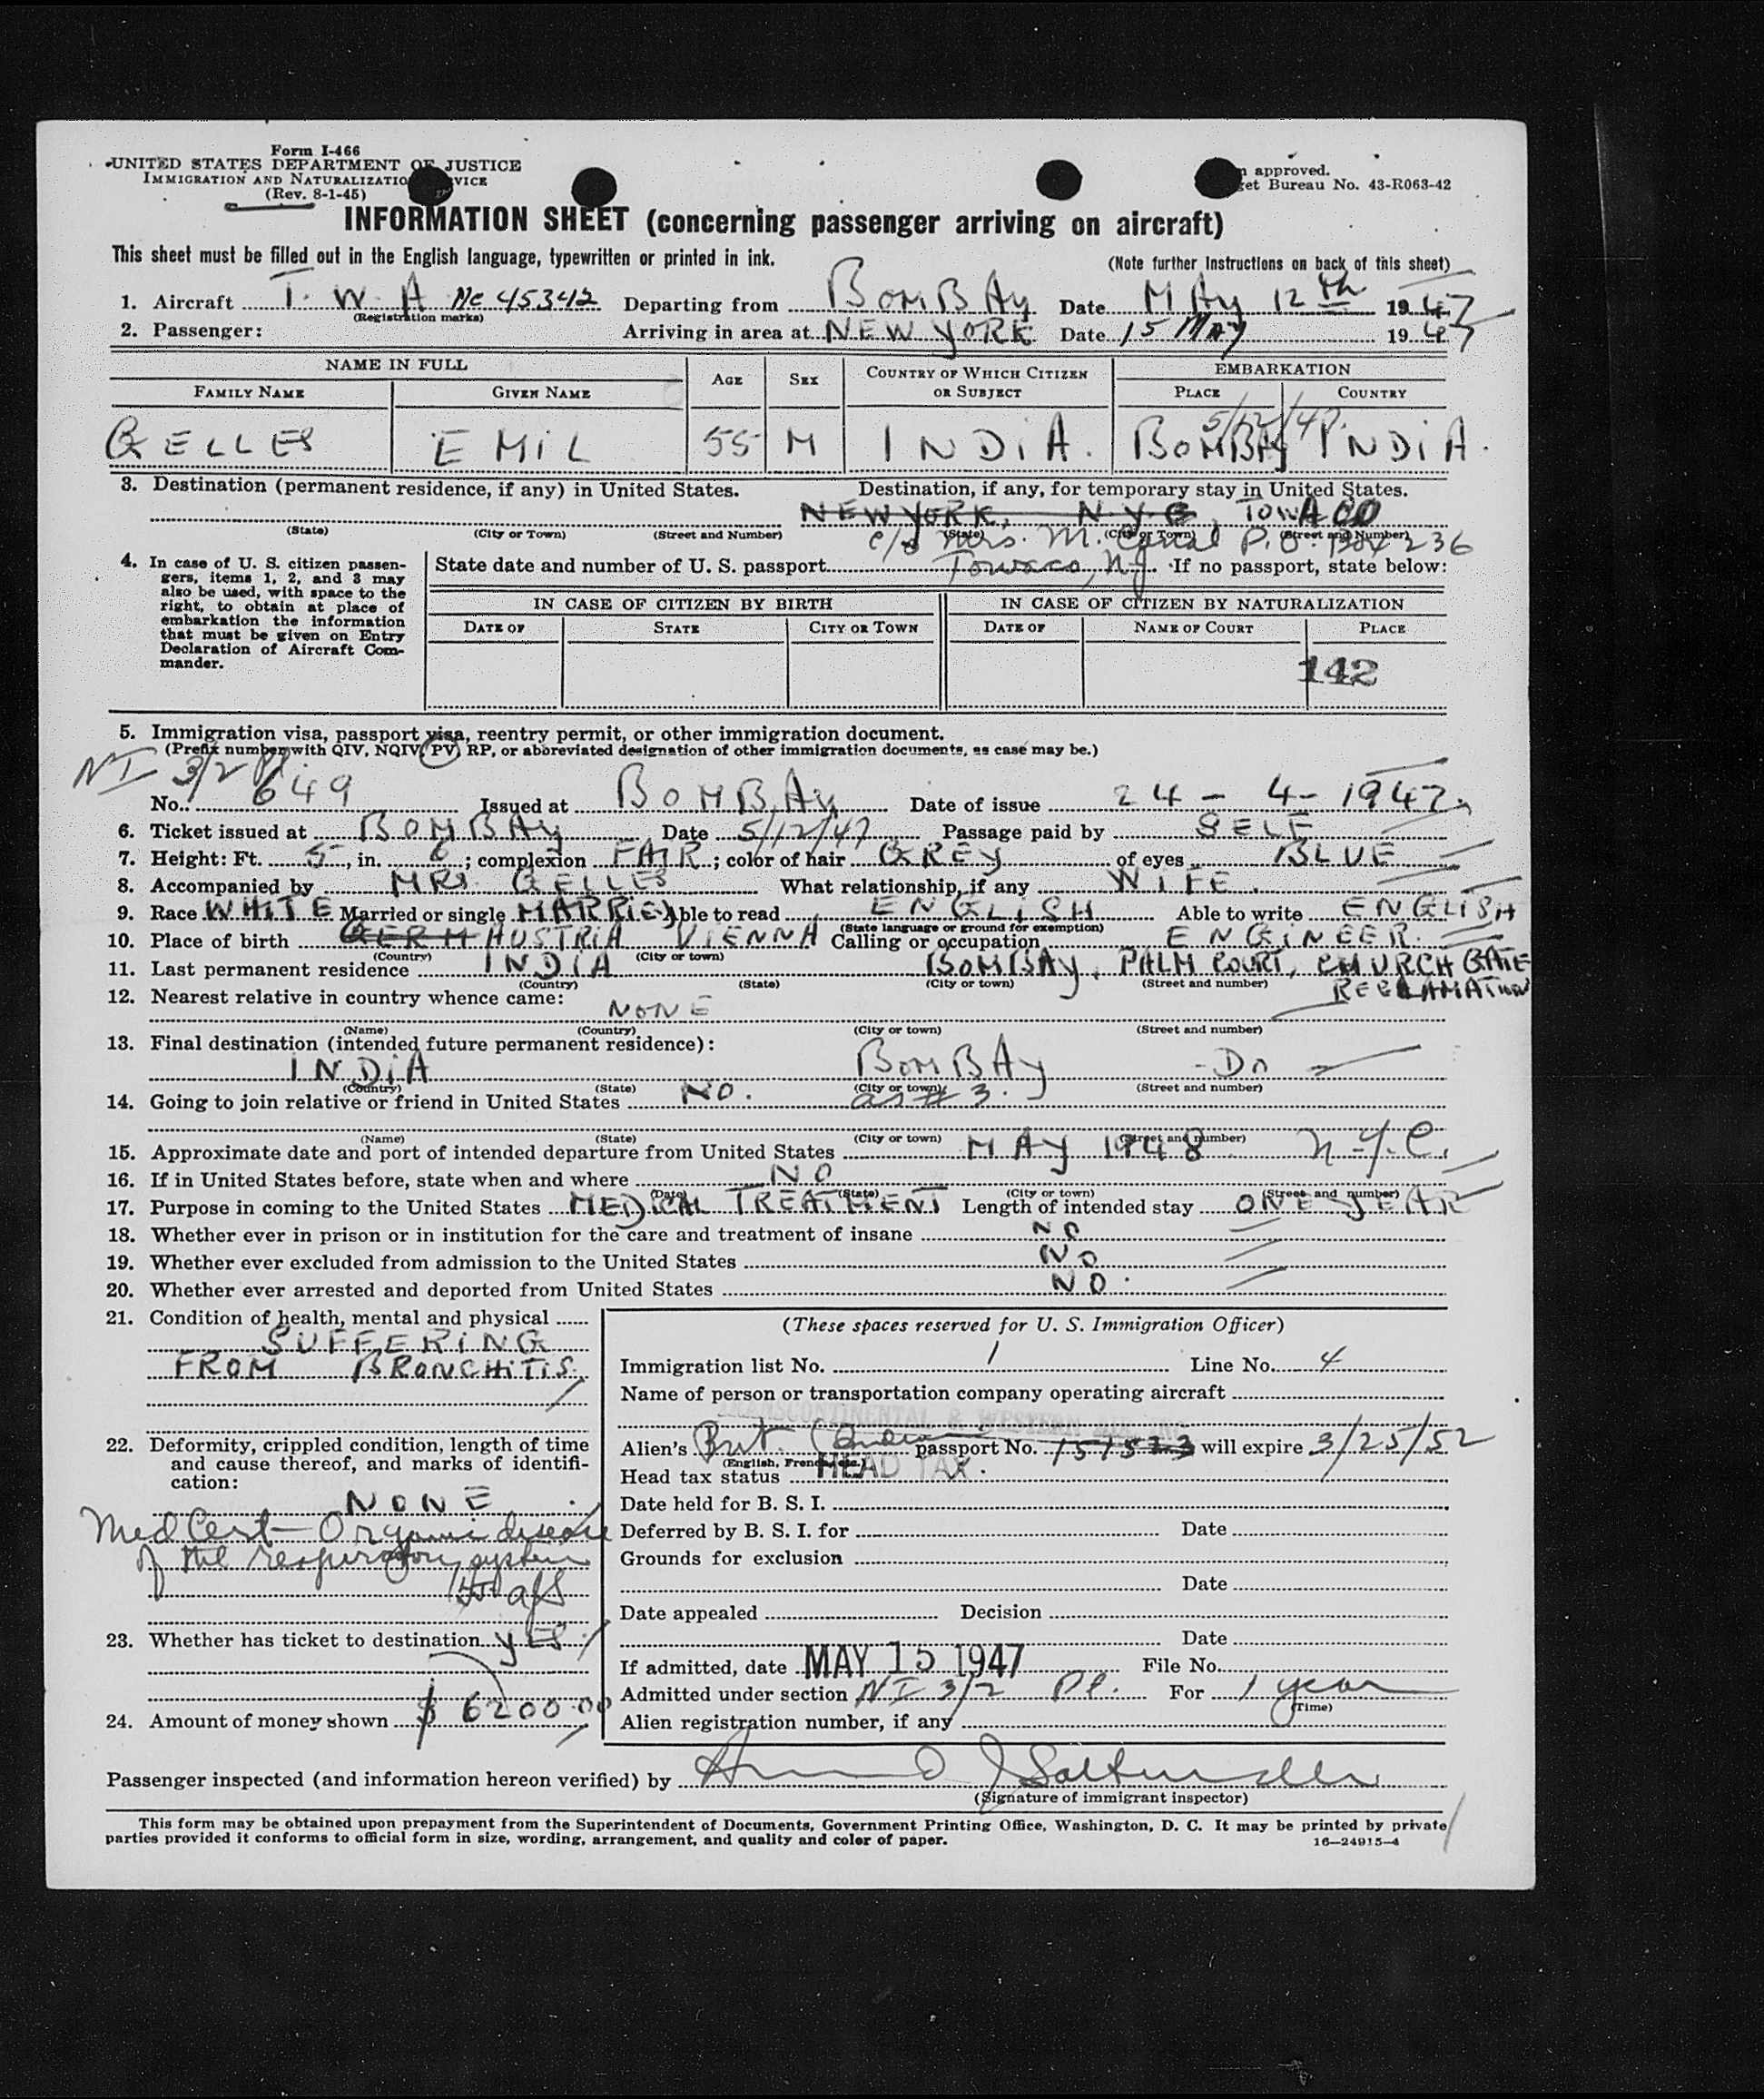 Form I-466
UNITED STATES DEPARTMENT OF JUSTICE
IMMIGRATION AND NATURALIZATION SERVICE
(Rev. 8-1-45)
approved.
Bureau No. 43-R063-42
INFORMATION SHEET (concerning passenger arriving on aircraft)
This sheet must be filled out in the English language, typewritten or printed in ink.
(Note further Instructions on back of this sheet)
1. Aircraft T. W. A Nc 45342 Departing from BOMBAY Date MAY 12th 1947
(Registration marks)
2. Passenger: Arriving in area at NEW YORK Date 15 MAY 1947
NAME IN FULL AGE SEX COUNTRY OF WHICH CITIZEN OR SUBJECT EMBARKATION
FAMILY NAME GIVEN NAME PLACE COUNTRY
5/12/47
GELLES EMIL 55 M INDIA. BOMBAY INDIA.
3. Destination (permanent residence, if any) in United States. Destination, if any, for temporary stay in United States.
NEW YORK, N.Y.C, TOWACO
(State) (City or Town) (Street and Number) (State) (City or Town) (Street and Number)
c/o Mrs. M. P.O. Box 236
4. In case of U. S. citizen passengers, items 1, 2, and 3 may also be used, with space to the right, to obtain at place of embarkation the information that must be given on Entry Declaration of Aircraft Commander.
State date and number of U. S. passport Towaco, NJ If no passport, state below:
IN CASE OF CITIZEN BY BIRTH IN CASE OF CITIZEN BY NATURALIZATION
DATE OF STATE CITY OR TOWN DATE OF NAME OF COURT PLACE
142
5. Immigration visa, passport visa, reentry permit, or other immigration document.
(Prefix number with QIV, NQIV, PV, RP, or abbreviated designation of other immigration documents, as case may be.)
NI 3/2 Pl.
No. 649 Issued at BOMBAY Date of issue 24-4-1947.
6. Ticket issued at BOMBAY Date 5/12/47 Passage paid by SELF
7. Height: Ft. 5, in. 6; complexion FAIR; color of hair GREY of eyes BLUE
8. Accompanied by MRS. GELLES What relationship, if any WIFE.
9. Race WHITE Married or single MARRIED Able to read ENGLISH Able to write ENGLISH
(State language or ground for exemption)
10. Place of birth GERM AUSTRIA VIENNA Calling or occupation ENGINEER.
(Country) (City or town)
11. Last permanent residence INDIA BOMBAY, PALM COURT, CHURCH GATE
RECLAMATION
(Country) (State) (City or town) (Street and number)
12. Nearest relative in country whence came: NONE
(Name) (Country) (City or town) (Street and number)
13. Final destination (intended future permanent residence):
INDIA BOMBAY - Do -
(Country) (State) (City or town) (Street and number)
14. Going to join relative or friend in United States NO. as # 3.
(Name) (State) (City or town) (Street and number)
15. Approximate date and port of intended departure from United States MAY 1948 N.Y.C.
16. If in United States before, state when and where NO
(Date) (State) (City or town) (Street and number)
17. Purpose in coming to the United States MEDICAL TREATMENT Length of intended stay ONE YEAR
18. Whether ever in prison or in institution for the care and treatment of insane NO
19. Whether ever excluded from admission to the United States NO
20. Whether ever arrested and deported from United States NO.
21. Condition of health, mental and physical
SUFFERING
FROM BRONCHITIS.
22. Deformity, crippled condition, length of time and cause thereof, and marks of identification:
NONE
Med Cert - Organic disease
of the respiratory system
23. Whether has ticket to destination YES.
24. Amount of money shown $ 6200.00
(These spaces reserved for U. S. Immigration Officer)
Immigration list No. 1 Line No. 4
Name of person or transportation company operating aircraft
TRANSCONTINENTAL & WESTERN AIR, INC.
Alien's Brit. (Indian passport No. 157523 will expire 3/25/52
(English, French, etc.)
Head tax status HEAD TAX.
Date held for B. S. I.
Deferred by B. S. I. for Date
Grounds for exclusion
Date
Date appealed Decision
Date
If admitted, date MAY 15 1947 File No.
Admitted under section NI 3/2 Pl. For 1 year
(Time)
Alien registration number, if any
Passenger inspected (and information hereon verified) by
(Signature of immigrant inspector)
This form may be obtained upon prepayment from the Superintendent of Documents, Government Printing Office, Washington, D. C. It may be printed by private
parties provided it conforms to official form in size, wording, arrangement, and quality and color of paper.
16—24915-4